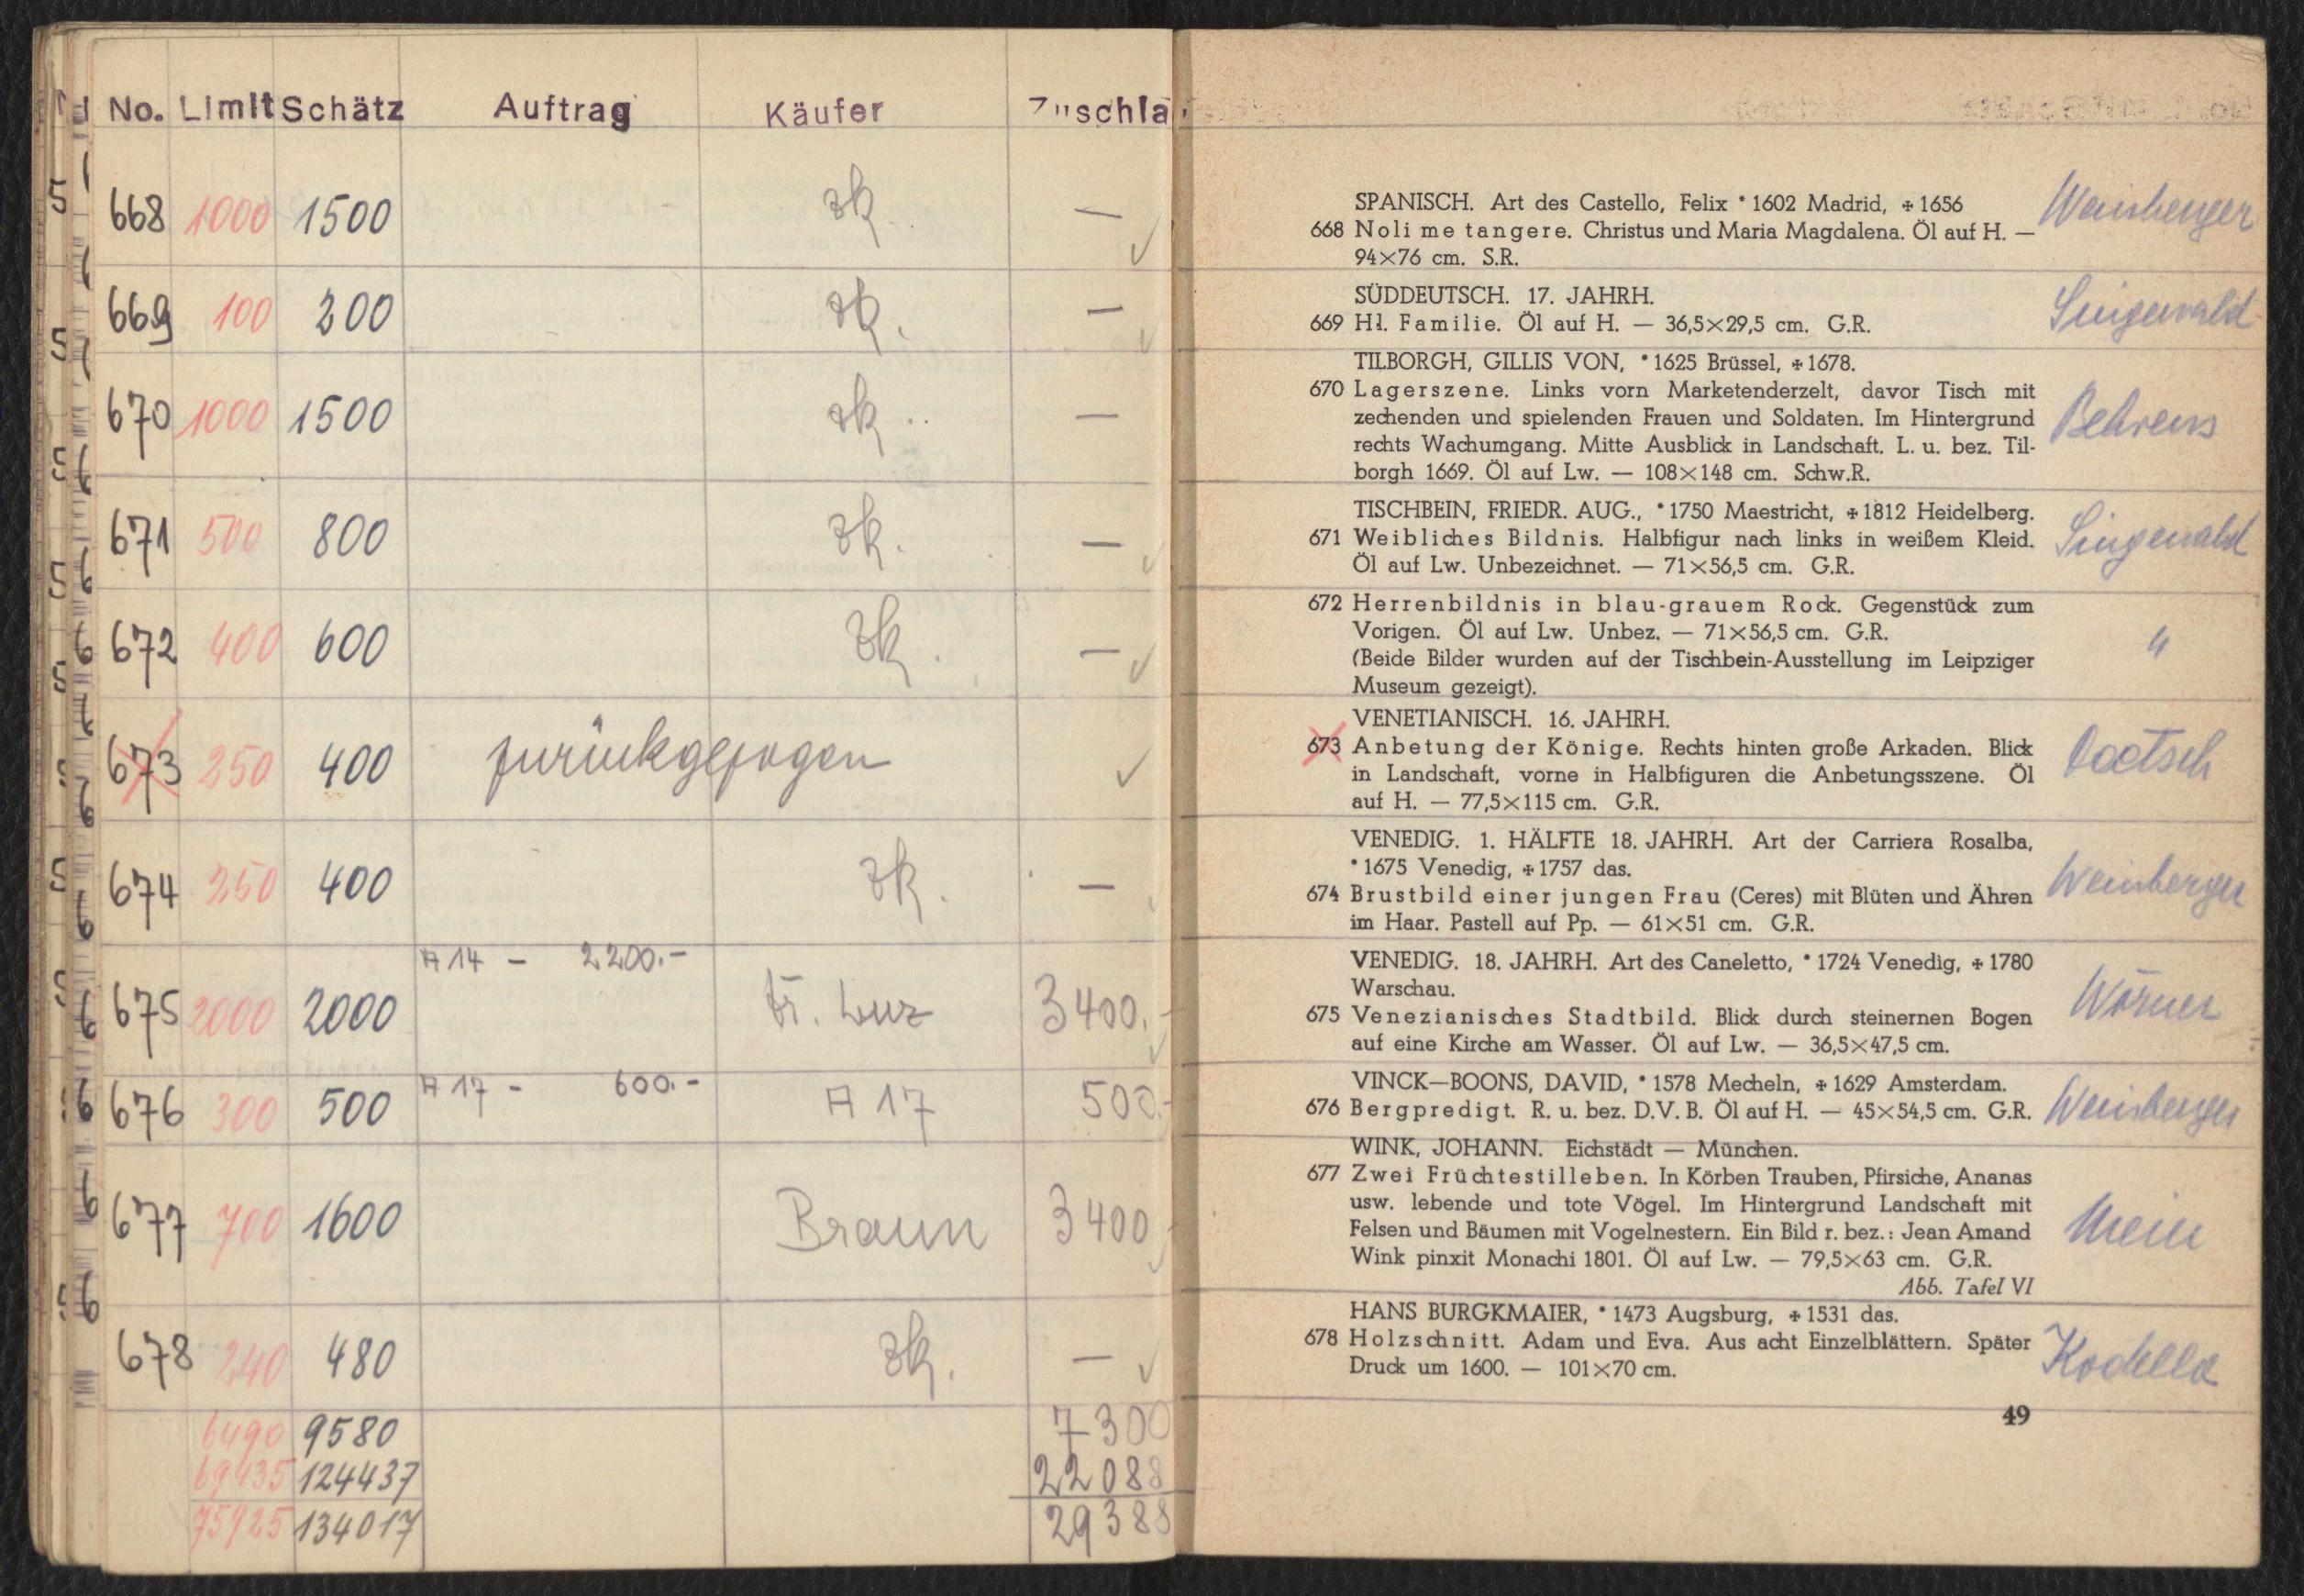 No. Limit Schätz Auftrag Käufer Zuschla
668 1000 1500 zk. —
669 100 200 zk. —
670 1000 1500 zk. —
671 500 800 zk. —
672 400 600 zk. —
673 250 400 zurückgezogen
674 250 400 zk. —
A 14 – 2200.-
675 2000 2000 3400.-
A 17 – 600.-
676 300 500 A 17 500.-
677 700 1600 Braun 3400
678 240 480 zk. —
6490 9580 7300
69435 124437 22088
75925 134017 29388
SPANISCH. Art des Castello, Felix * 1602 Madrid, + 1656
668 Noli me tangere. Christus und Maria Magdalena. Öl auf H. — Weinberger
94×76 cm. S.R.
SÜDDEUTSCH. 17. JAHRH.
669 Hl. Familie. Öl auf H. — 36,5×29,5 cm. G.R. Singewald
TILBORGH, GILLIS VON, * 1625 Brüssel, + 1678.
670 Lagerszene. Links vorn Marketenderzelt, davor Tisch mit
zechenden und spielenden Frauen und Soldaten. Im Hintergrund Behrens
rechts Wachumgang. Mitte Ausblick in Landschaft. L. u. bez. Til-
borgh 1669. Öl auf Lw. — 108×148 cm. Schw.R.
TISCHBEIN, FRIEDR. AUG., * 1750 Maestricht, + 1812 Heidelberg.
671 Weibliches Bildnis. Halbfigur nach links in weißem Kleid. Singewald
Öl auf Lw. Unbezeichnet. — 71×56,5 cm. G.R.
672 Herrenbildnis in blau-grauem Rock. Gegenstück zum
Vorigen. Öl auf Lw. Unbez. — 71×56,5 cm. G.R. "
(Beide Bilder wurden auf der Tischbein-Ausstellung im Leipziger
Museum gezeigt).
VENETIANISCH. 16. JAHRH.
673 Anbetung der Könige. Rechts hinten große Arkaden. Blick
in Landschaft, vorne in Halbfiguren die Anbetungsszene. Öl
auf H. — 77,5×115 cm. G.R.
VENEDIG. 1. HÄLFTE 18. JAHRH. Art der Carriera Rosalba,
* 1675 Venedig, + 1757 das.
674 Brustbild einer jungen Frau (Ceres) mit Blüten und Ähren Weinberger
im Haar. Pastell auf Pp. — 61×51 cm. G.R.
VENEDIG. 18. JAHRH. Art des Caneletto, * 1724 Venedig, + 1780
Warschau. Wörner
675 Venezianisches Stadtbild. Blick durch steinernen Bogen
auf eine Kirche am Wasser. Öl auf Lw. — 36,5×47,5 cm.
VINCK—BOONS, DAVID, * 1578 Mecheln, + 1629 Amsterdam.
676 Bergpredigt. R. u. bez. D.V.B. Öl auf H. — 45×54,5 cm. G.R. Weinberger
WINK, JOHANN. Eichstädt — München.
677 Zwei Früchtestilleben. In Körben Trauben, Pfirsiche, Ananas
usw. lebende und tote Vögel. Im Hintergrund Landschaft mit
Felsen und Bäumen mit Vogelnestern. Ein Bild r. bez.: Jean Amand
Wink pinxit Monachi 1801. Öl auf Lw. — 79,5×63 cm. G.R.
Abb. Tafel VI
HANS BURGKMAIER, * 1473 Augsburg, + 1531 das.
678 Holzschnitt. Adam und Eva. Aus acht Einzelblättern. Später Kodella
Druck um 1600. — 101×70 cm.
49